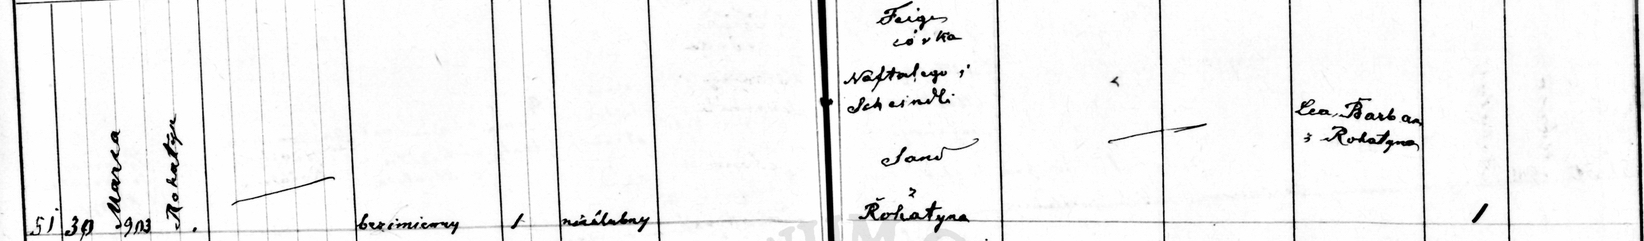 51
30 Marca 903
Rohatyn
bezimienny
1
nieślubny
Feige
córka
Naftalego i
Scheindli
Sand
z
Rohatyna
Lea Barban
z Rohatyna
1